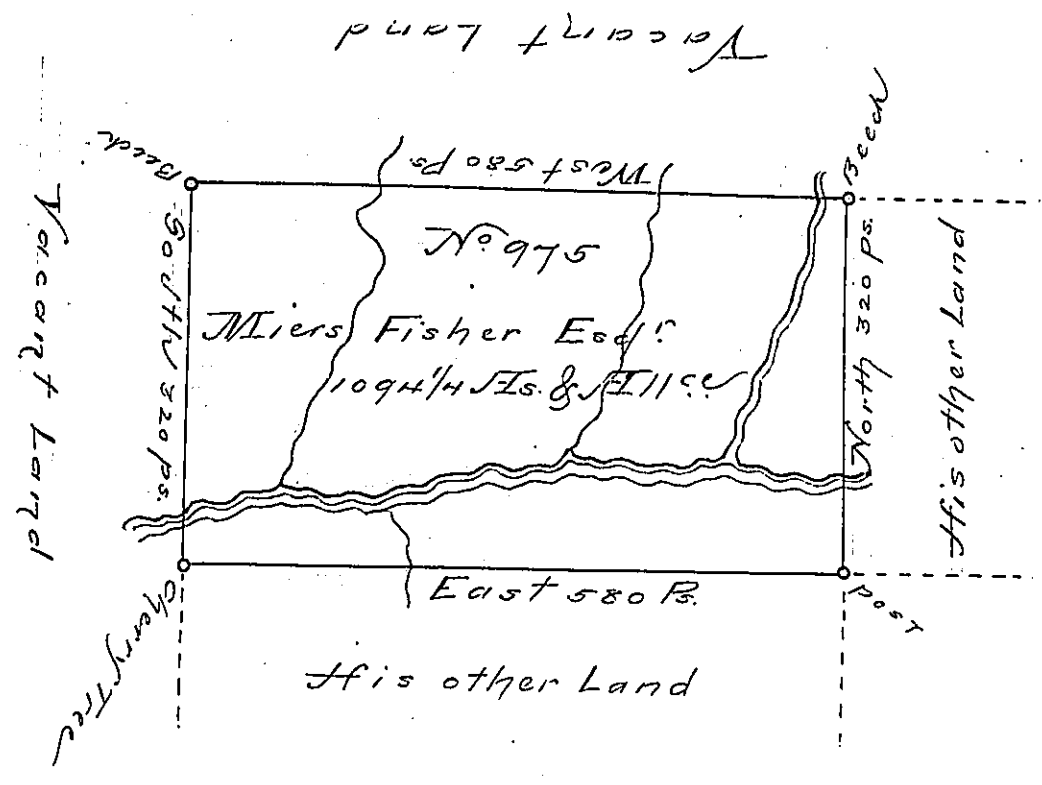 Vacant Land
Beech
West 580 Ps.
Beech
Vacant Land
South 320 Ps.
No. 975
Miers Fisher Esqr.
1094 1/4 As. & Allce
North 320 ps.
His other Land
Cherry Tree
East 580 Ps.
Post
His other Land